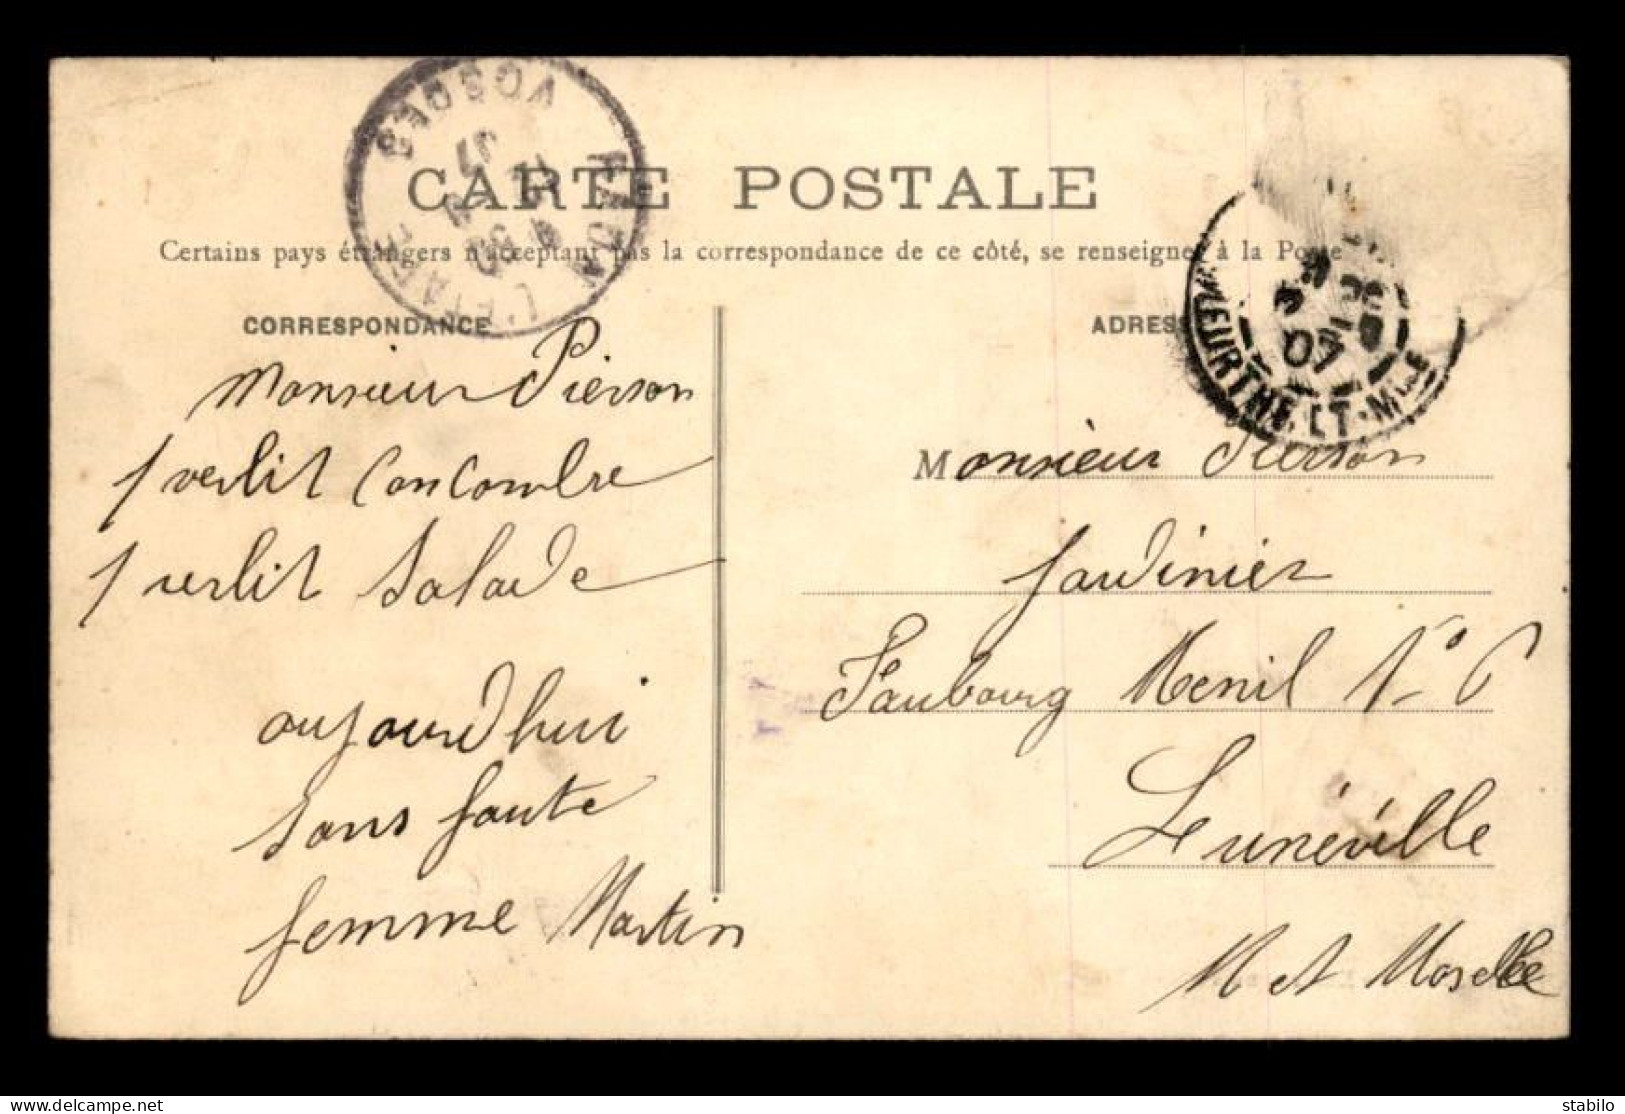 VOSGES
RAON L'ETAPE
CARTE POSTALE
Certains pays étrangers n'acceptant pas la correspondance de ce côté, se renseigner à la Poste
CORRESPONDANCE
Monsieur Pierson
1 verlit Concombre
1 verlit Salade
aujourdhui
sans faute
femme Martin
ADRESS
07
MEURTHE-ET-MLLE
Monsieur Pierson
Jardinier
Faubourg Menil N° 6
Lunéville
M et Moselle
stabilo